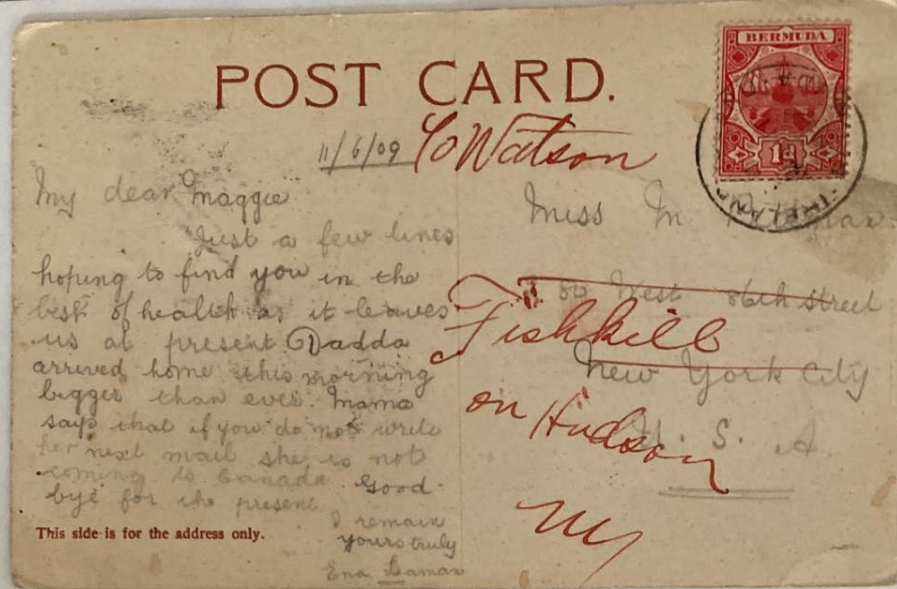 BERMUDA
1d
POST CARD.
11/6/09
C/o Watson
My dear Maggie
Just a few lines
hoping to find you in the
best of health as it leaves
us at present Dadda
arrived home this morning
bigger than ever. Mama
says that if you do not write
her next mail she is not
coming to Canada Good
bye for the present
I remain
yours truly
Ena
This side is for the address only.
Miss M
West 86th Street
New York City
U. S. A.
Fishkill
on Hudson
NY